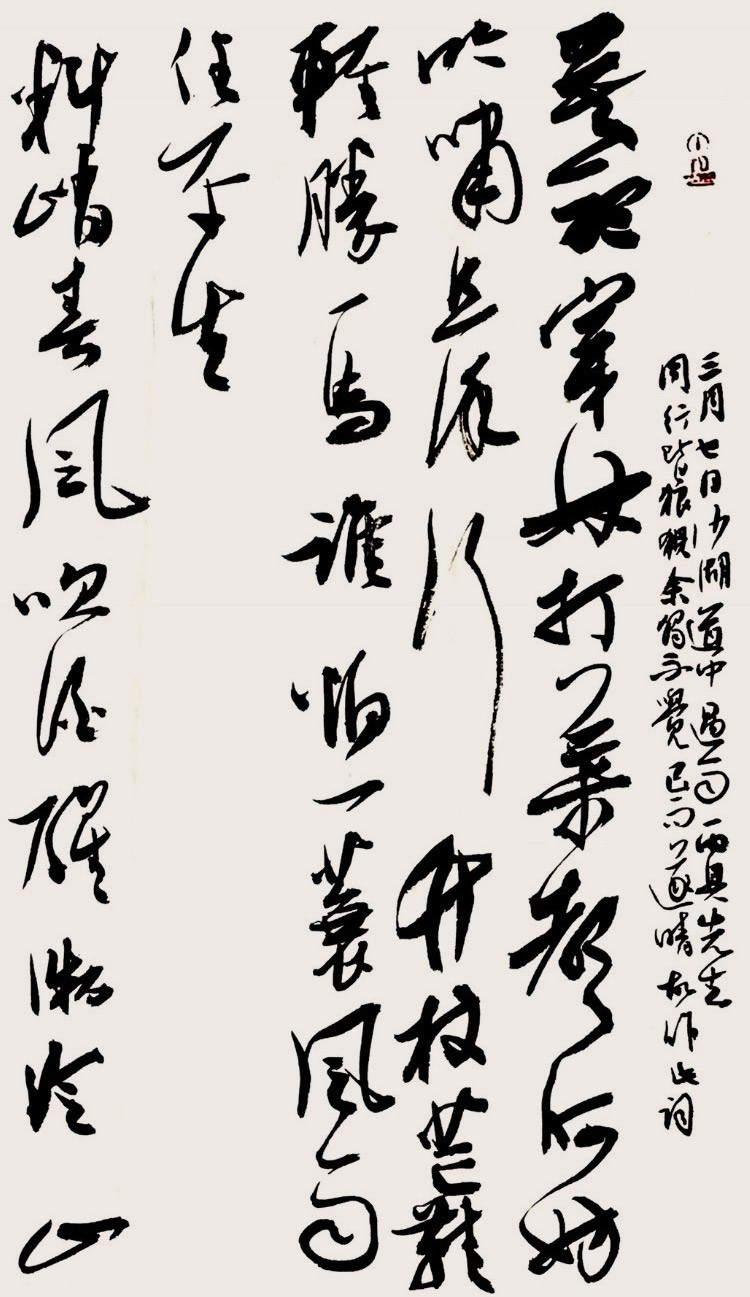 三月七日沙湖道中遇雨雨具先去
同行皆狼狽余獨不覺已而遂晴故作此詞
莫聽穿林打葉聲何妨
吟嘯且徐行竹杖芒鞋
輕勝馬誰怕一蓑風雨
任平生
料峭春風吹酒醒微冷山